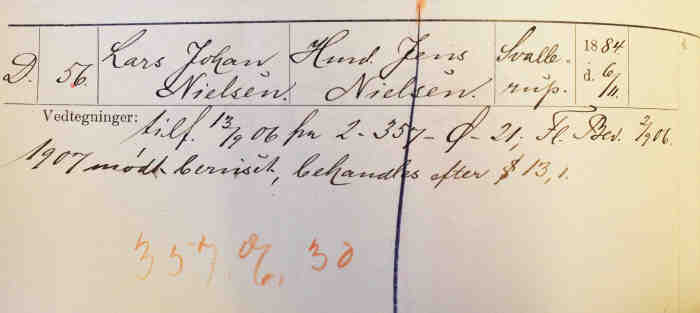 D. 56. Lars Johan Hmd. Jens Svalle- 1884.
Nielsen. Nielsen. rup. d. 6/11.
Vedtegninger: tilf. 13/9 06 fra 2-357-Ø-21; Fl. Bev. 3/9 06.
1907 mødt beviset, behandles efter § 13, 1.
357. Ø. 30